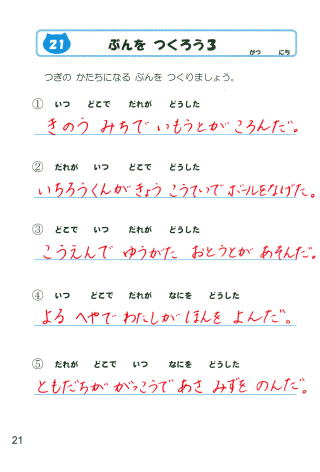 21 ぶんを つくろう3 がつ にち
つぎの かたちになる ぶんを つくりましょう。
① いつ どこで だれが どうした
きのう みちで いもうとが ころんだ。
② だれが いつ どこで どうした
いちろうくんが きょう こうていで ボールをなげた。
③ どこで いつ だれが どうした
こうえんで ゆうがた おとうとが あそんだ。
④ いつ どこで だれが なにを どうした
よる へやで わたしが ほんを よんだ。
⑤ だれが どこで いつ なにを どうした
ともだちが がっこうで あさ みずを のんだ。
21